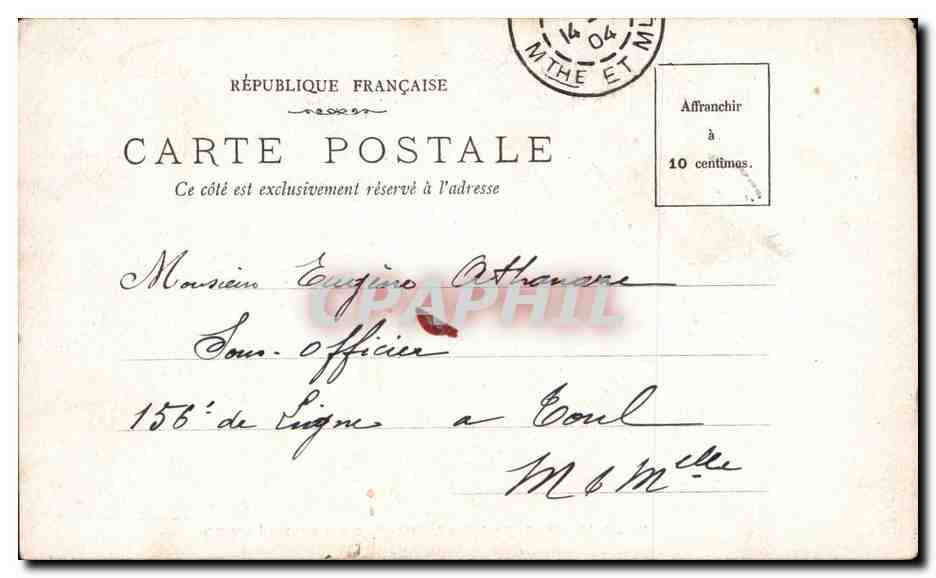 14 04
MTHE ET ML
RÉPUBLIQUE FRANÇAISE
CARTE POSTALE
Ce côté est exclusivement réservé à l'adresse
Affranchir
à
10 centimes.
Monsieur Eugène Athanase
Sous-officier
156e de Ligne a Toul
M & Melle
CPAPHIL